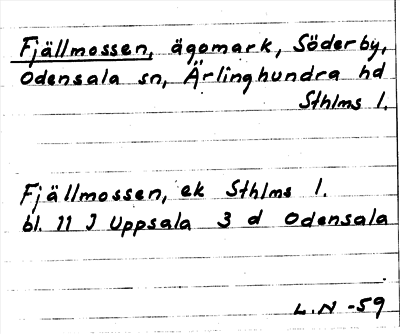 Fjällmossen, ägomark, Söderby,
Odensala sn, Ärlinghundra hd
Sthlms l.
Fjällmossen, ek Sthlms l.
bl. 11 J Uppsala 3 d Odensala
L.N -59